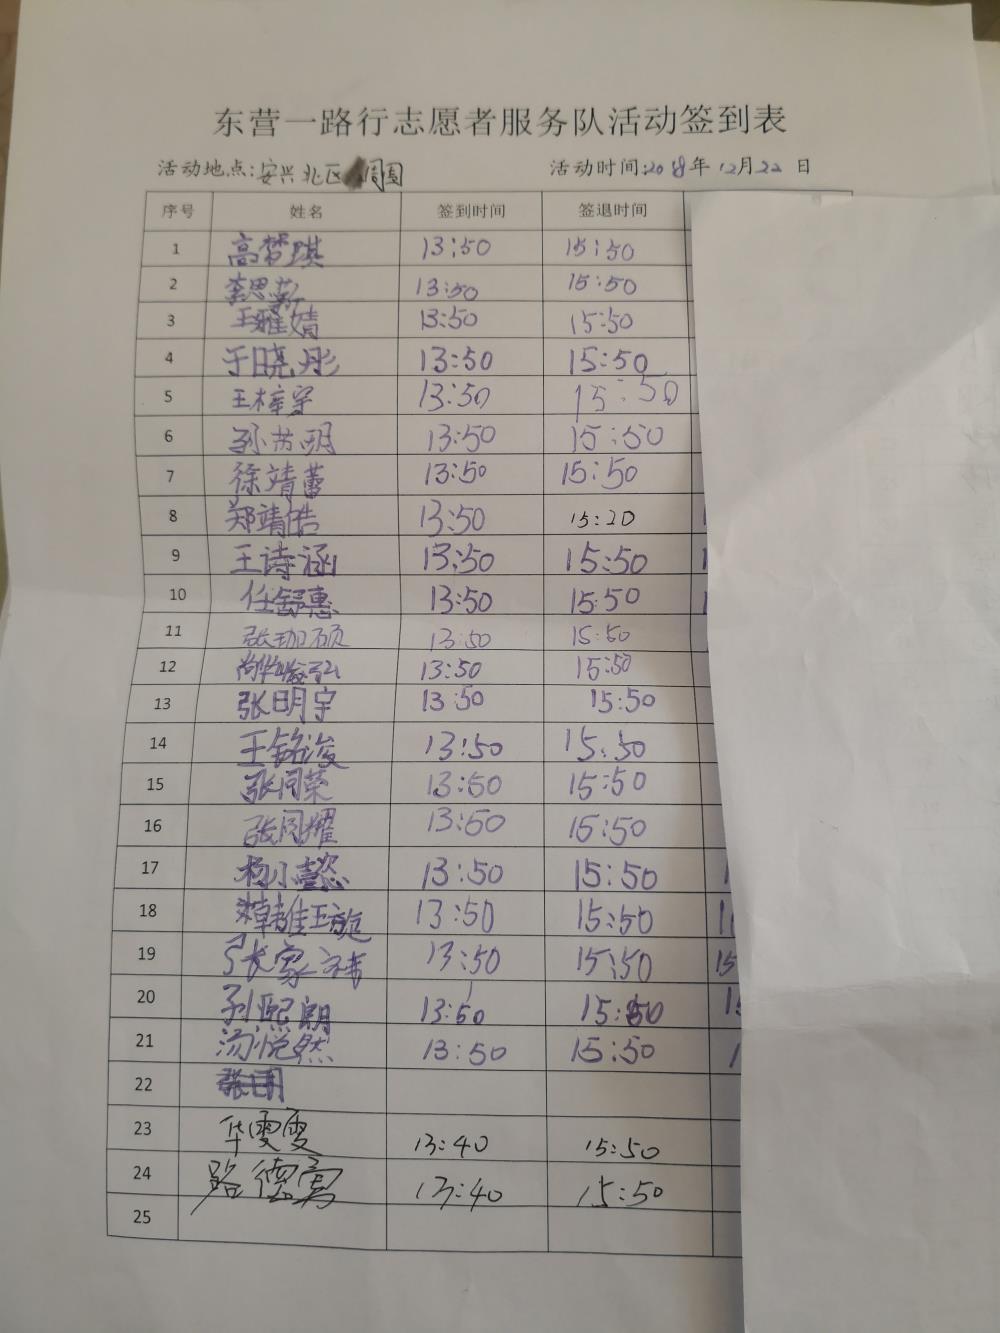 东营一路行志愿者服务队活动签到表
活动地点:安兴北区周围 活动时间:2018年12月22日
序号 姓名 签到时间 签退时间
1 高梦琪 13:50 15:50
2 李思蕲 13:50 15:50
3 王雅婧 13:50 15:50
4 于晓彤 13:50 15:50
5 王梓宇 13:50 15:50
6 13:50 15:50
7 徐靖蕾 13:50 15:50
8 郑靖皓 13:50 15:20
9 王诗涵 13:50 15:50
10 任舒惠 13:50 15:50
11 张珈硕 13:50 15:50
12 13:50 15:50
13 张明宇 13:50 15:50
14 王铭浚 13:50 15:50
15 张同荣 13:50 15:50
16 张同耀 13:50 15:50
17 杨小懿 13:50 15:50
18 13:50 15:50
19 张家祎 13:50 15:50 15
20 孙熙朗 13:50 15:50
21 汤悦然 13:50 15:50
22
23 华雯雯 13:40 15:50
24 路德嵩 13:40 15:50
25